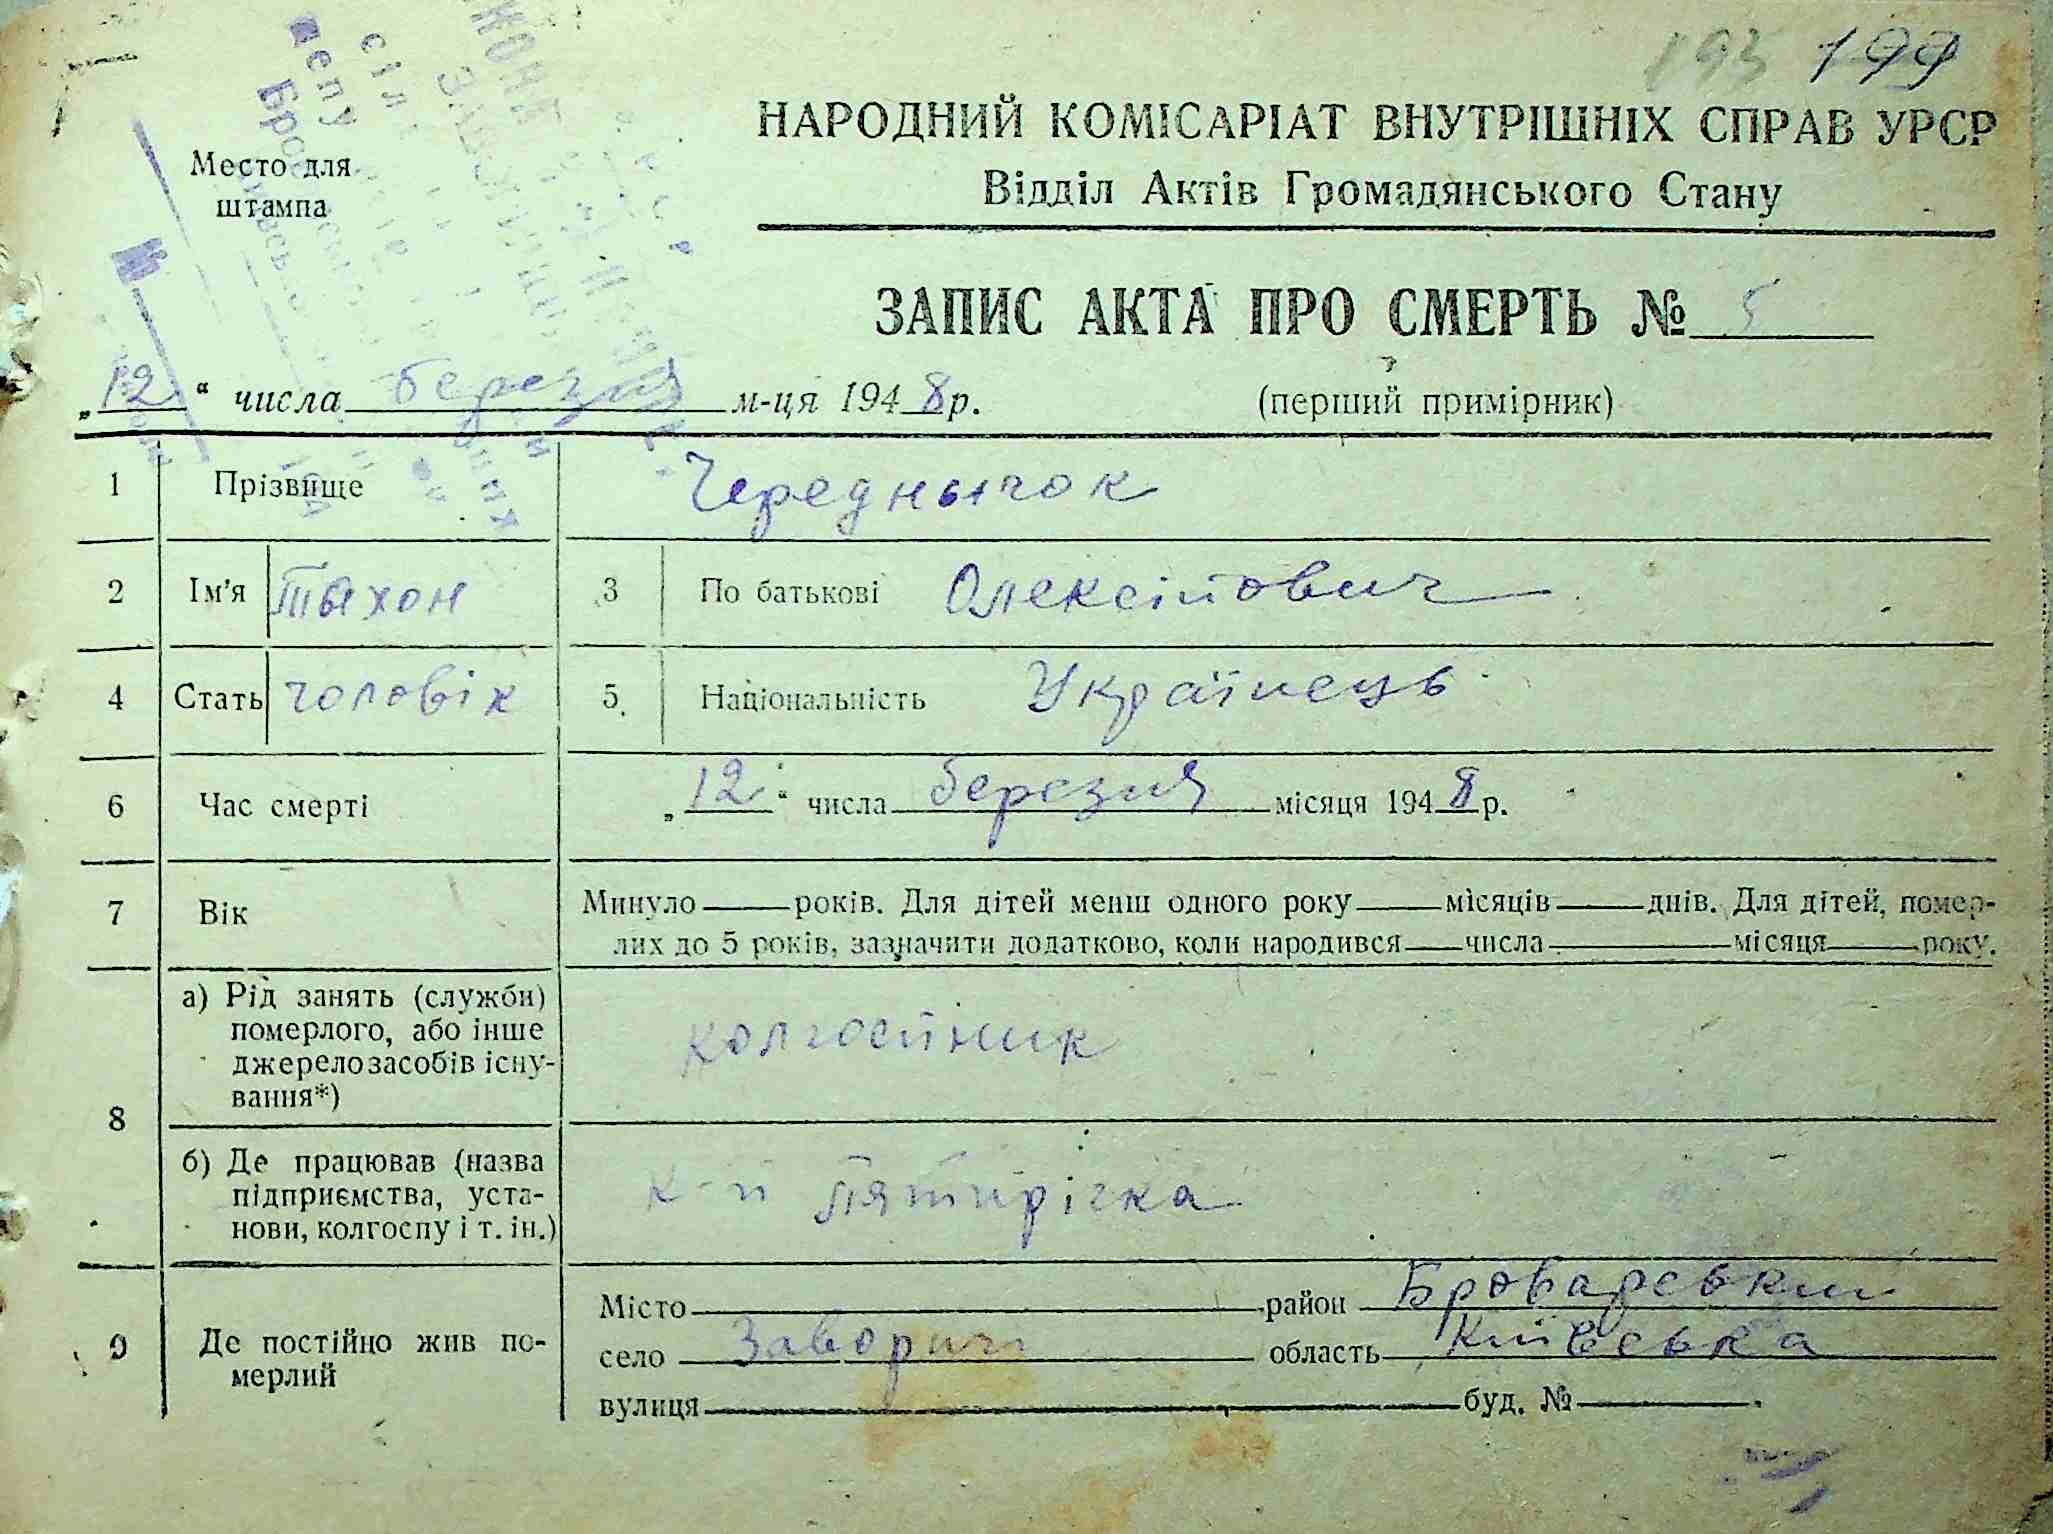 193 199
НАРОДНИЙ КОМІСАРІАТ ВНУТРІШНІХ СПРАВ УРСР
Відділ Актів Громадянського Стану
Место для
штампа
ЗАПИС АКТА ПРО СМЕРТЬ № 5
„12“ числа березня м-ця 1948р.
(перший примірник)
1 Прізвище Чередньчок
2 Ім'я Тыхон 3 По батькові Олексійович
4 Стать чоловік 5. Національність Українець
6 Час смерті „12“ числа березня місяця 1948р.
7 Вік Минуло років. Для дітей менш одного року місяців днів. Для дітей, помер-
лих до 5 років, зазначити додатково, коли народився числа місяця року.
8 а) Рід занять (служби)
померлого, або інше
джерело засобів існу-
вання*)
колгоспник
б) Де працював (назва
підприємства, уста-
нови, колгоспу і т. ін.)
к-п Пятирічка
9 Де постійно жив по-
мерлий
Місто район Броварський
село Заворичі область Київська
вулиця буд. №